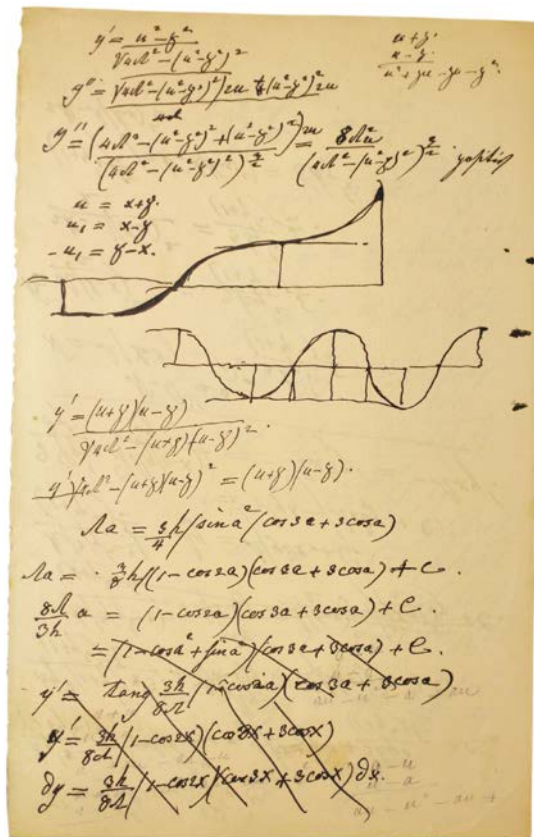 y' = u² - y² / √4Λ² - (u² - y²)²
u + y
u - y
u² + yu - yu - y²
y'' = √4Λ² - (u² - y²)²) 2u + (u² - y²)² 2u
y'' = (4Λ² - (u² - y²)² + (u² - y²)²) 2u / (4Λ² - (u² - y²)²)^3/2 = 8Λ²u / (4Λ² - (u² - y²)²)^3/2
u = x + y.
u₁ = x - y
- u₁ = y - x.
y' = (u + y)(u - y) / √4Λ² - (u + y)(u - y)² .
y' √4Λ² - (u + y)(u - y)² = (u + y)(u - y).
Λa = 3/4 h ∫sin a² (cos 3a + 3cos a)
Λa = · 3/8 h ∫(1 - cos 2a)(cos 3a + 3cos a) + C.
8Λ/3h a = (1 - cos 2a)(cos 3a + 3cos a) + C.
= (1 - cos a² + sin a²)(cos 3a + 3cos a) + C.
y' = tang 3h/8Λ (1 - cos 2a)(cos 3a + 3cos a)
y' = 3h/8Λ (1 - cos 2x)(cos 3x + 3cos x)
∂y = 3h/8Λ (1 - cos 2x)(cos 3x + 3cos x) ∂x.